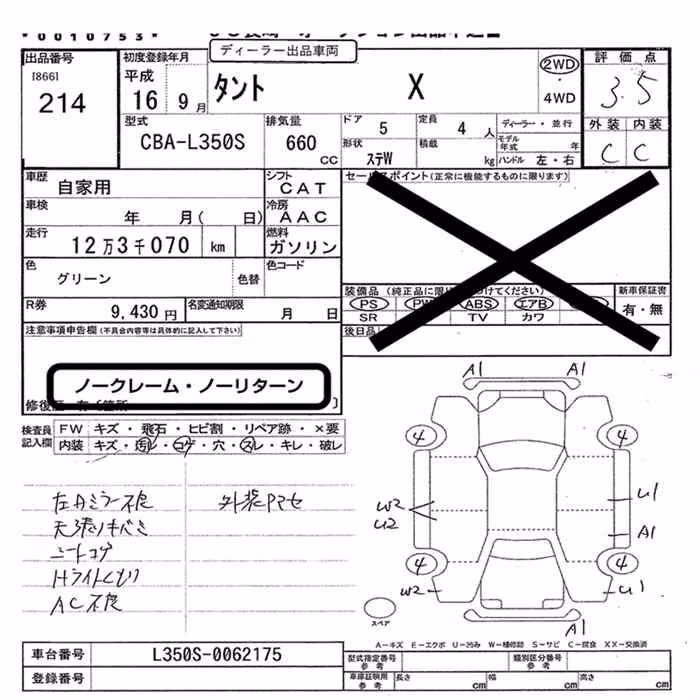 *0010753*
ディーラー出品車両
出品番号
[866]
214
初度登録年月
平成
16 9 月
タント X
2WD
・
4WD
評価点
3.5
外装 内装
C C
型式
CBA-L350S
排気量
660
CC
ドア
5
定員
4 人
ディーラー・並行
モデル年式 年
形状
ステW
積載
kg
ハンドル 左・右
車歴
自家用
シフト
CAT
車検
年 月( 日)
冷房
AAC
走行
12万3千070 km
燃料
ガソリン
色
グリーン
色替
色コード
R券
9,430 円
名変通知期限
月 日
セールスポイント(正常に機能するものに限ります)
装備品
新車保証書
PS PW ABS エアB
有・無
SR TV カワ
後日品
注意事項申告欄(不具合内容等は具体的に記入して下さい)
ノークレーム・ノーリターン
修復歴
検査員
記入欄
FW キズ・飛石・ヒビ割・リペア跡・×要
内装 キズ・汚レ・コゲ・穴・スレ・キレ・破レ
A1 A1
4 4
W2
U2
U1
A1
4 4
W2 U1
A1
スペア
シートコゲ
Hライトくもり
AC不良
A-キズ E-エクボ U-凹み W-補修跡 S-サビ C-腐食 XX-交換済
車台番号
L350S-0062175
登録番号
型式指定番号
参考
類別区分番号
参考
車庫証明用
参考
長さ cm
幅 cm
高さ cm